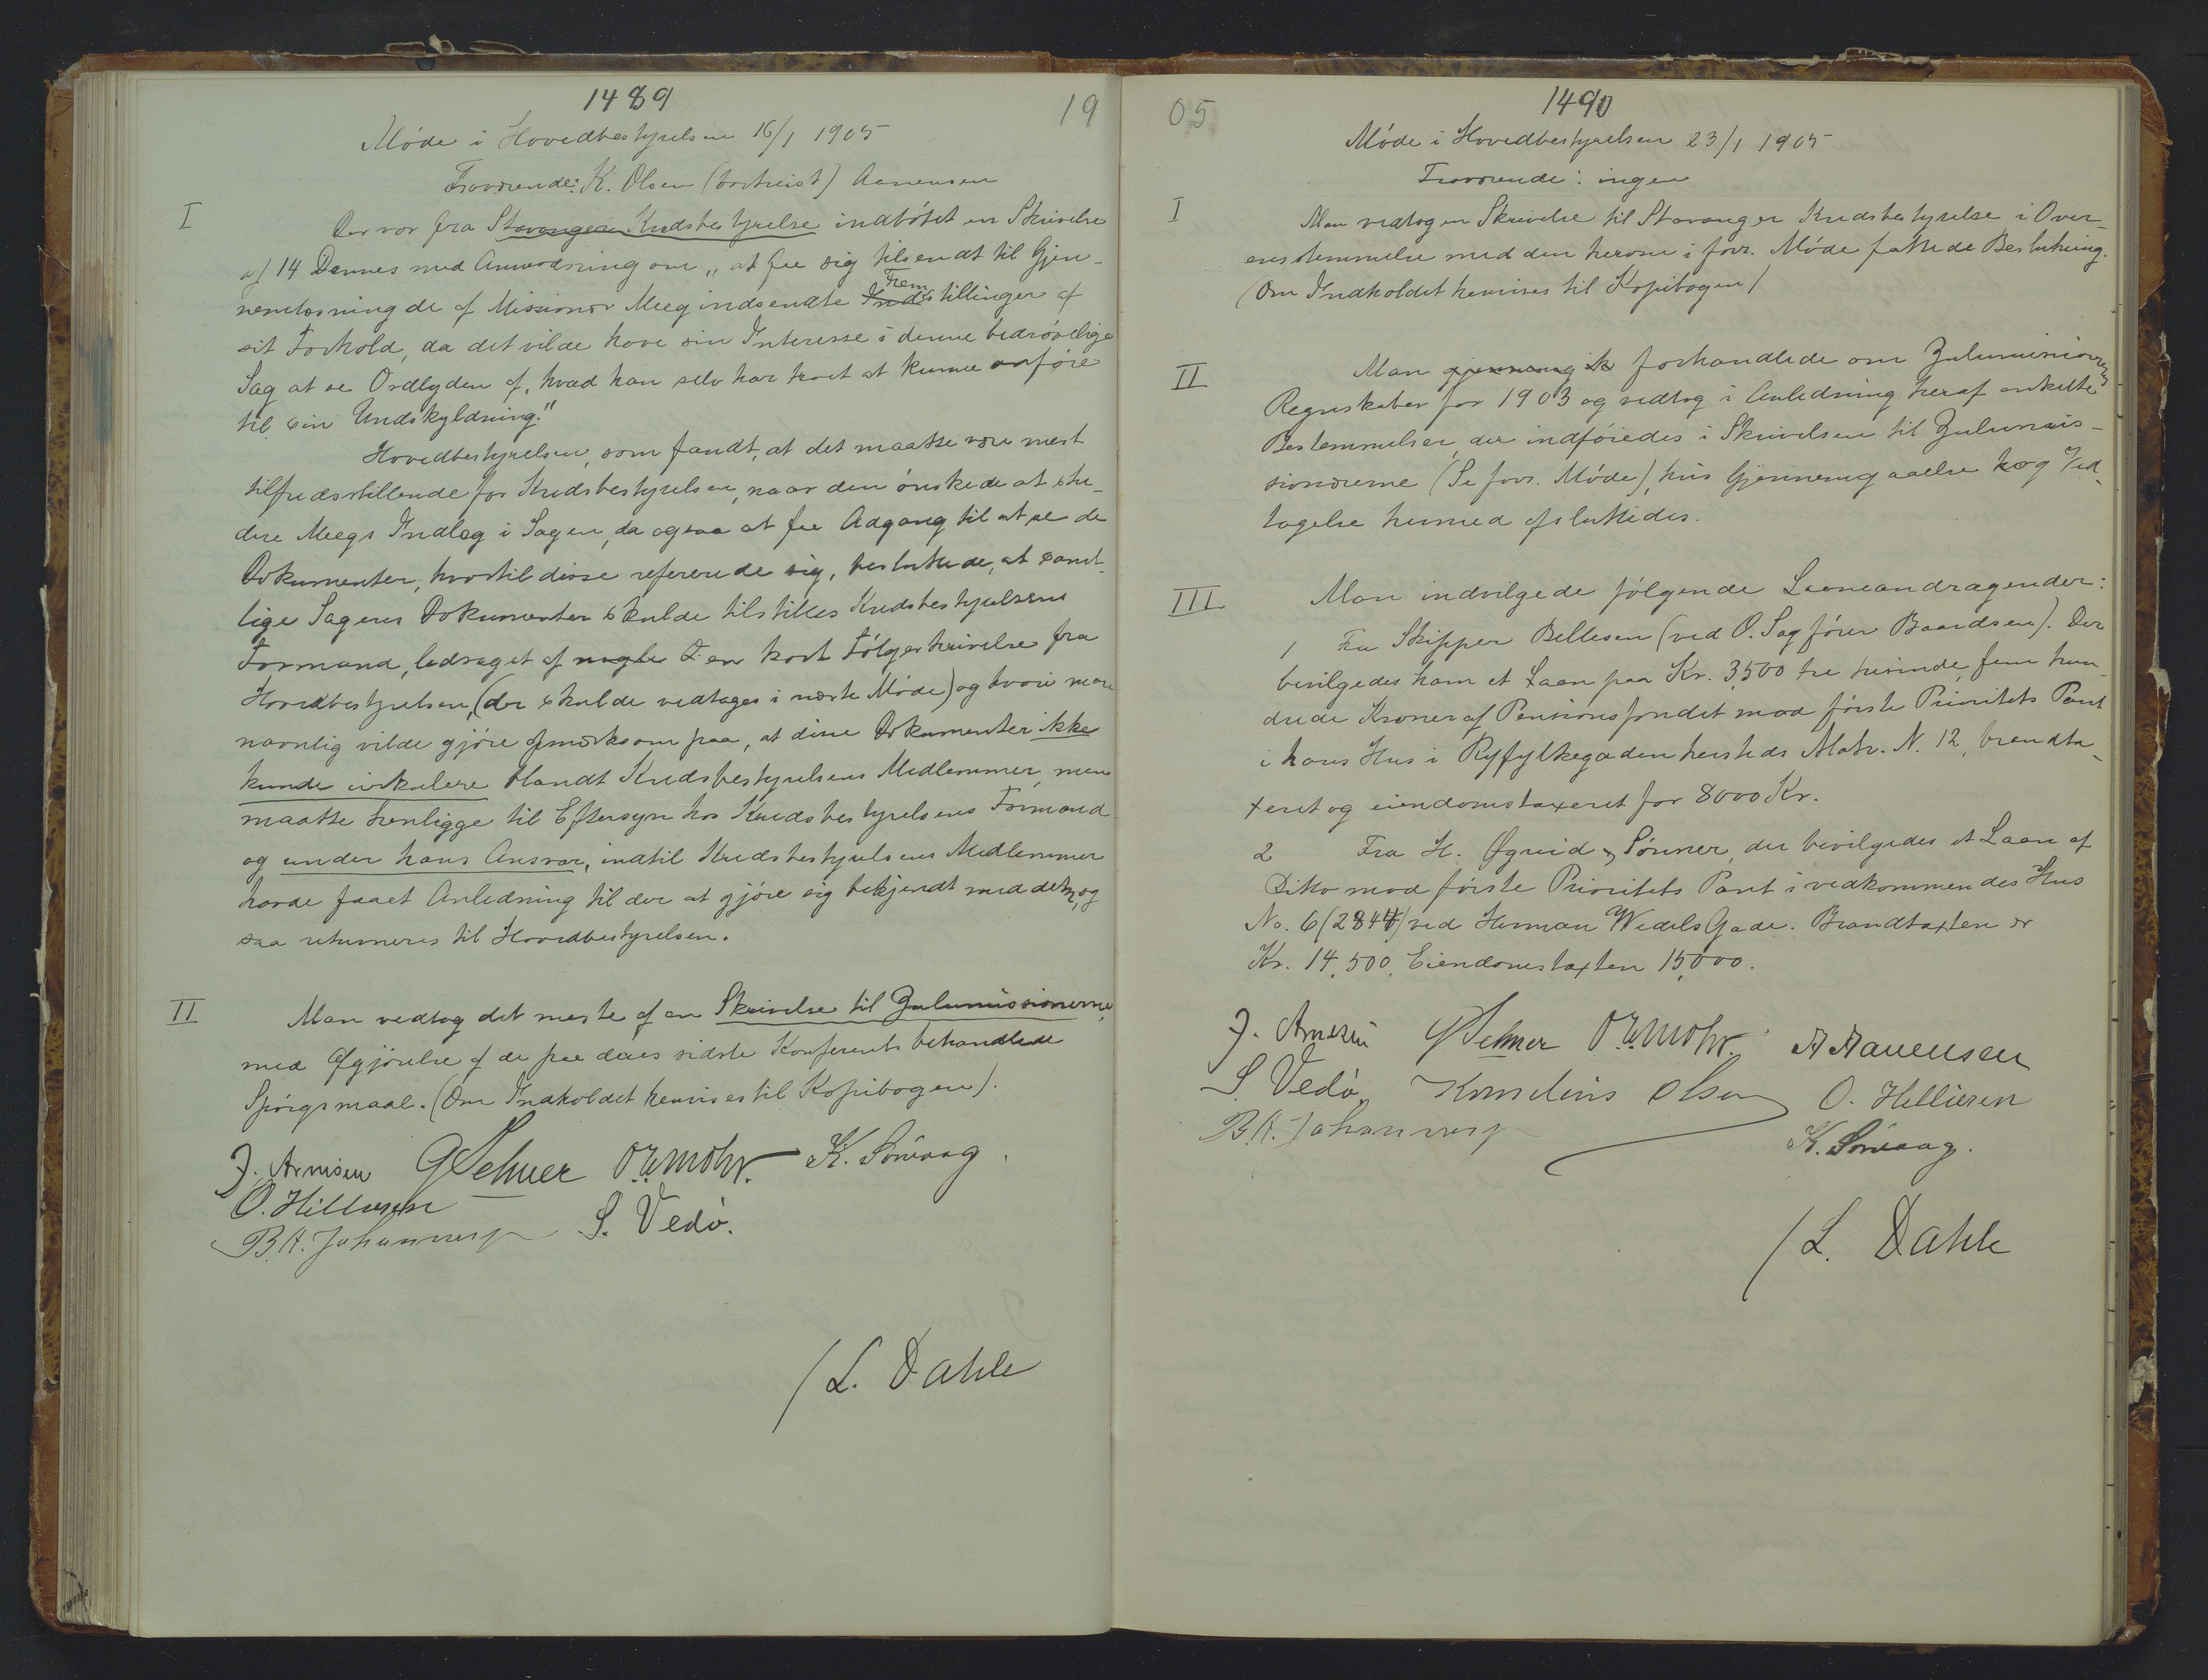 1489
19
Møde i Hovedbestyrelsen 16/1 1905
Fraværende: K. Olsen (bortreist) Aanensen
I
Der var fra Stavangers Kredsbestyrelse indløbet en Skrivelse
af 14 Dennes med Anmodning om „at faa sig tilsendt til Gjen-
nemlæsning de af Missionær Meeg indsendte Fremstillinger af
sit Forhold, da det vilde have sin Interesse i denne bedrøvelige
Sag at se Ordlyden af, hvad han selv har havt at kunne anføre
til sin Undskyldning."
Hovedbestyrelsen, som fandt, at det maatte være mest
tilfredsstillende for Kredsbestyrelsen, naar den ønskede at stu-
dere Meegs Indlæg i Sagen, da ogsaa at faa Adgang til at se de
Dokumenter, hvortil disse refererede sig, besluttede, at samt-
lige Sagens Dokumenter skulde tilstilles Kredsbestyrelsens
Formand, ledsaget af en kort Følgeskrivelse fra
Hovedbestyrelsen, (der skulde vedtages i næste Møde) og hvori man
navnlig vilde gjøre opmærksom paa, at disse Dokumenter ikke
kunde cirkulere blandt Kredsbestyrelsens Medlemmer, men
maatte henligge til Eftersyn hos Kredsbestyrelsens Formand
og under hans Ansvar, indtil Kredsbestyrelsens Medlemmer
havde faaet Anledning til der at gjøre sig bekjendt med dem, og
saa returneres til Hovedbestyrelsen.
II
Man vedtog det meste af en Skrivelse til Zulumissionærerne
med Afgjørelse af de paa deres sidste Konferents behandlede
Spørgsmaal. (Om Indholdet henvises til Kopibogen).
J. Arnesen G Selmer O. E. Mohr. K. Sømaag.
O. Helliesen
B. A. Johannesen S. Vedø.
/ L. Dahle
05
1490
Møde i Hovedbestyrelsen 23/1 1905
Fraværende: ingen
I
Man vedtog en Skrivelse til Stavanger Kredsbestyrelse i Over-
ensstemmelse med den herom i forr. Møde fattede Beslutning.
(Om Indholdet henvises til Kopibogen)
II
Man gjennemgik forhandlede om Zulumissionens
Regnskaber for 1903 og vedtog i Anledning heraf enkelte
Bestemmelser, der indføiedes i Skrivelsen til Zulumis-
sionærerne (Se forr. Møde), hvis Gjennemgaaelse og Ved-
tagelse hermed afsluttedes.
III
Man indvilgede følgende Laaneandragender:
1 Fra Skipper Bellesen (ved O. Sagfører Baardsen). Der
bevilgedes ham et Laan paa Kr. 3,500 tre tusinde, fem hun-
drede Kroner af Pensionsfondet mod første Prioritets Pant
i hans Hus i Ryfylkegaden hersteds Matr. N. 12, brandta-
xeret og eiendomstaxeret for 8000 Kr.
2 Fra H. Øgreid & Sønner, der bevilgedes et Laan af
Ditto mod første Prioritets Pant i vedkommendes Hus
No. 6 (2844) ved Herman Wedels Gade. Brandtaxten er
Kr. 14,500, Eiendomstaxten 15,000.
J. Arnesen G Selmer O. E. Mohr. A Aanensen
S. Vedø. Kornelius Olsen O. Helliesen
B. A. Johannesen K. Sømaag.
/ L. Dahle